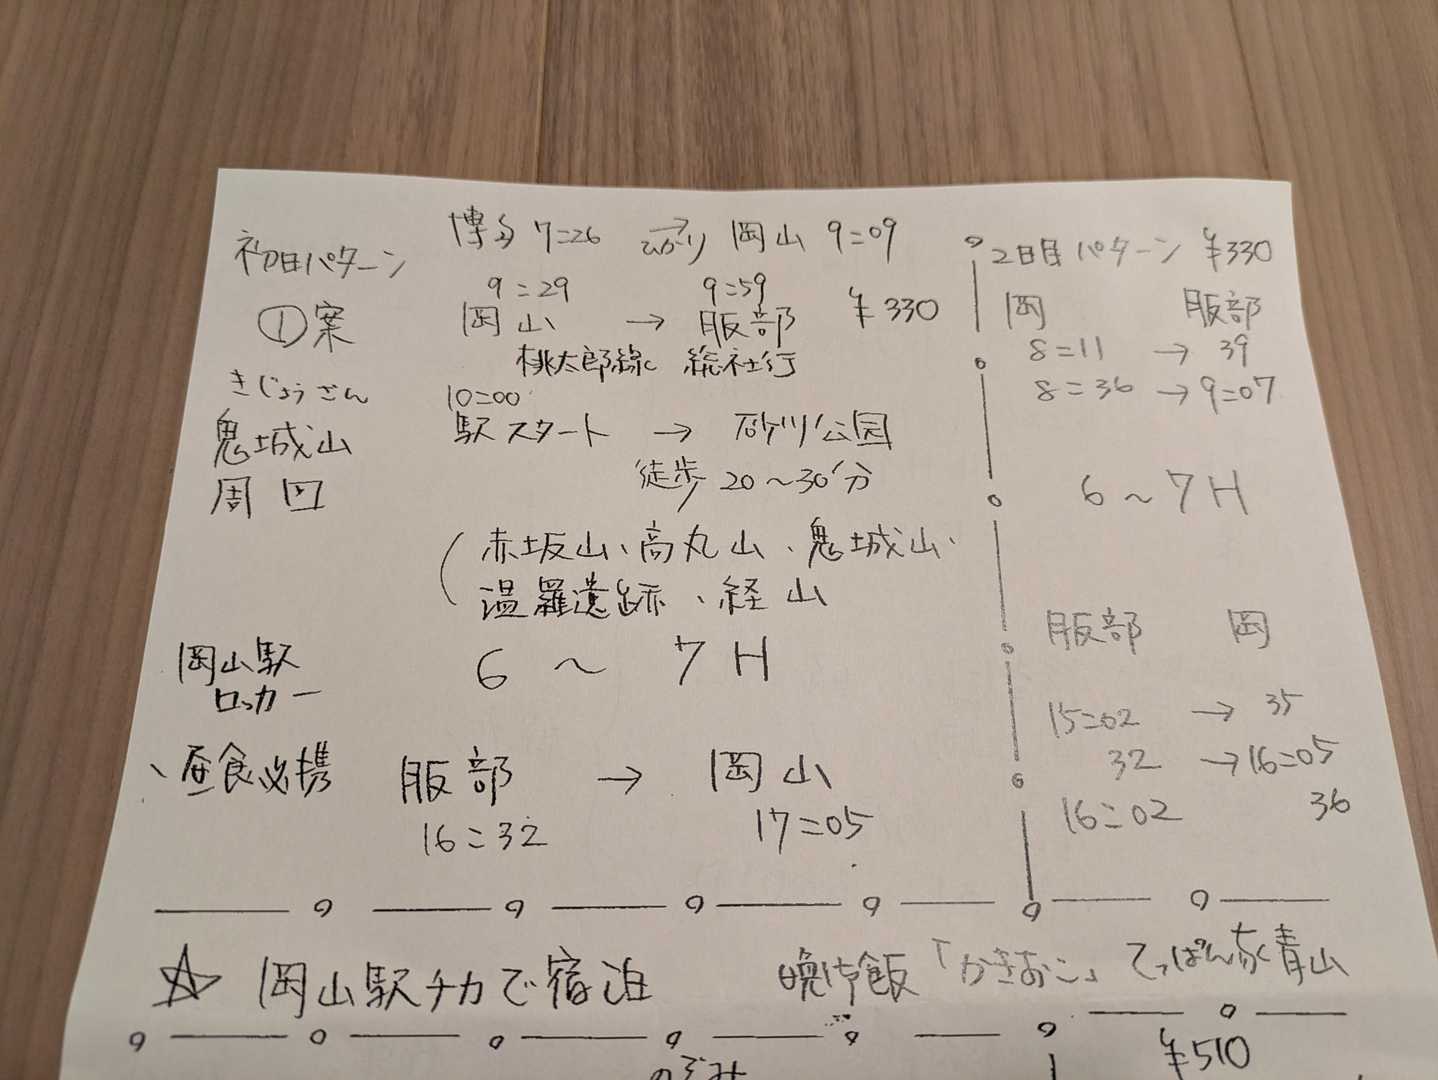 初日パターン
①案
きじょうさん
鬼城山
周回
岡山駅
ロッカー
、昼食必携
博多 7=26 ひかり→ 岡山 9=09
9=29 9=59
岡山 → 服部 ¥330
桃太郎線 総社行
10=00
駅スタート → 砂川公園
徒歩 20〜30分
(赤坂山、高丸山、鬼城山、
温羅遺跡、経山
6 〜 7H
服部 → 岡山
16=32 17=05
2日目パターン ¥330
岡 服部
8=11 → 39
8=36 → 9=07
6〜7H
服部 岡
15=02 → 35
32 → 16=05
16=02 36
☆ 岡山駅チカで宿泊 晩御飯「かきおこ」てっぱん家青山
のぞみ
¥510